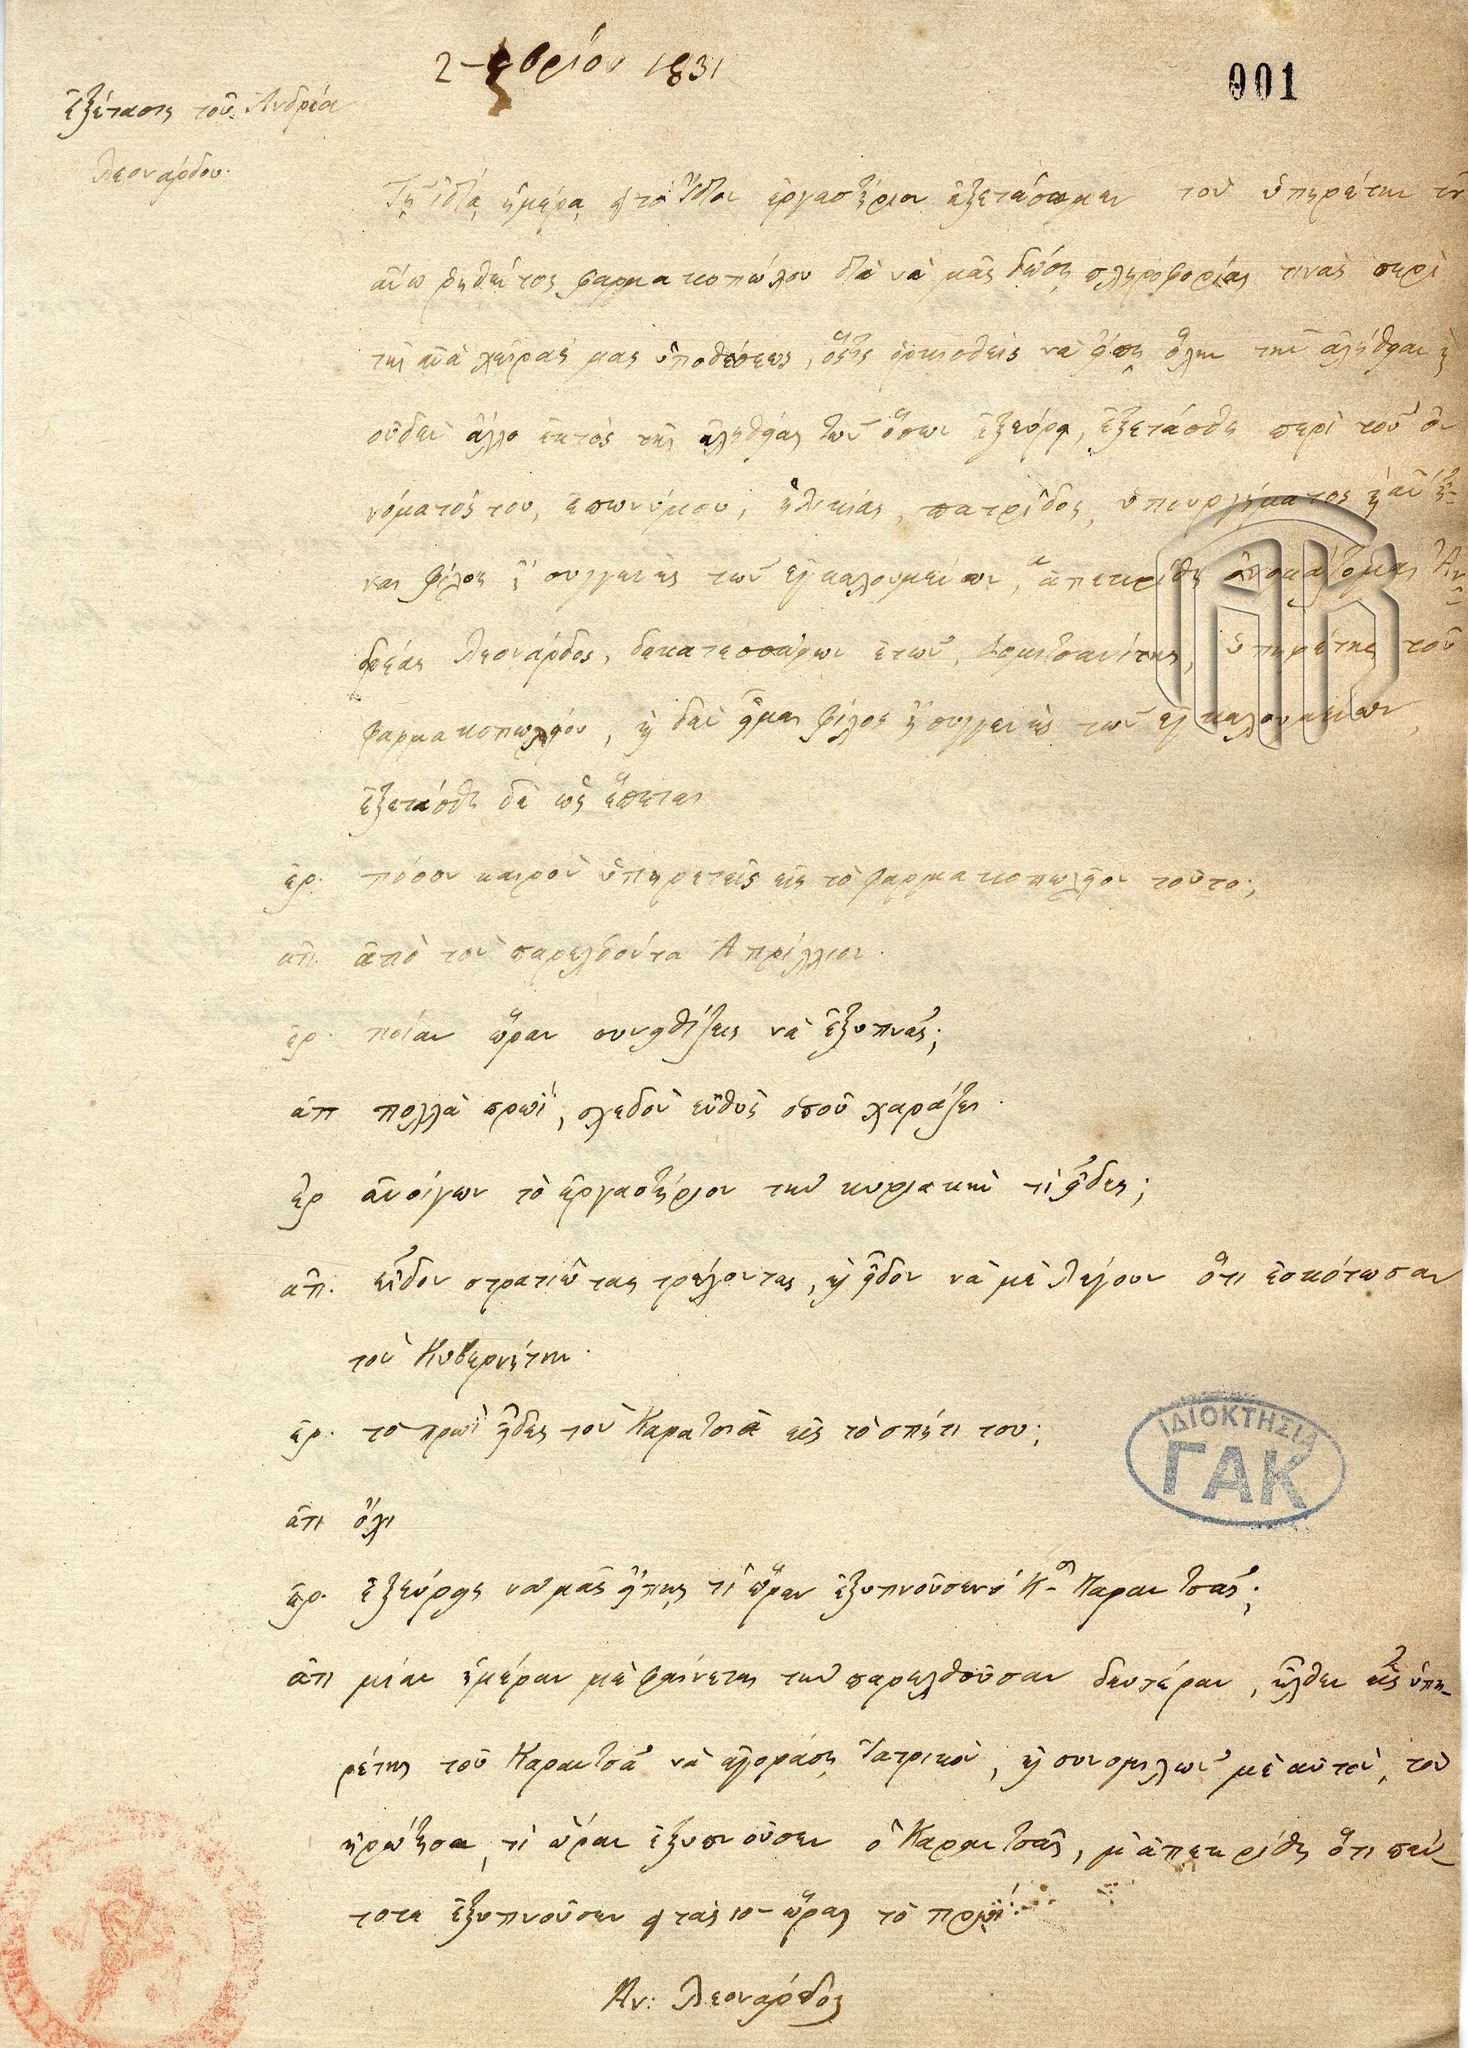 2 8βρίου 1831
001
Ἐξέτασις τοῦ Ἀνδρέα
Λεονάρδου.
Τῇ ἰδίᾳ ἡμέρᾳ εἰς τὸ ἴδιον ἐργαστήριον ἐξετάσαμεν τὸν ὑπηρέτην τοῦ
ἄνω ῥηθέντος φαρμακοπώλου διὰ νὰ μᾶς δώσῃ πληροφορίας τινὰς περὶ
τῆς ἀνὰ χεῖράς μας ὑποθέσεως, ὅστις ὁρκισθεὶς νὰ εἴπῃ ὅλην τὴν ἀλήθειαν καὶ
οὐδὲν ἄλλο ἐκτὸς τῆς ἀληθείας τῶν ὅσων ἐξεύρει, ἐξετάσθη περὶ τοῦ ὀ
νόματός του, ἐπωνύμου, ἡλικίας, πατρίδος, ὑπουργήματος καὶ ἂν εἶ-
ναι φίλος ἢ συγγενὴς τῶν ἐγκαλουμένων, ἀπεκρίθη ὀνομάζομαι Ἀν
δρέας Λεονάρδος, δεκατεσσάρων ἐτῶν, Δημιτσανίτης, ὑπηρέτης τοῦ
φαρμακοπωλείου, καὶ δὲν εἶμαι φίλος ἢ συγγενὴς τῶν ἐγκαλουμένων,
ἐξετάσθη δὲ ὡς ἕπεται
ἐρ. πόσον καιρὸν ὑπηρετεῖς εἰς τὸ φαρμακοπωλεῖον τοῦτο;
ἀπ. ἀπὸ τὸν παρελθόντα Ἀπρίλλιον.
ἐρ. ποίαν ὥραν συνειθίζεις νὰ ἐξυπνᾷς;
ἀπ πολλὰ πρωῒ, σχεδὸν εὐθὺς ὁποῦ χαράζει.
ἐρ ἀνοίγων τὸ ἐργαστήριον τὴν κυριακὴν τί εἶδες;
ἀπ. εἶδον στρατιώτας τρέχοντας, καὶ εἶδον νὰ μὲ λέγουν ὅτι ἐσκότωσαν
τὸν Κυβερνήτην.
ἐρ. τὸ πρωῒ εἶδες τὸν Καρατσᾶ εἰς τὸ σπήτι του;
ἀπ ὄχι
ἐρ. ἐξεύρεις νὰ μᾶς εἴπῃς τί ὥραν ἐξυπνοῦσεν ὁ Κ-ος Καρατσᾶς;
ἀπ μίαν ἡμέραν μὲ φαίνεται τὴν παρελθοῦσαν δευτέραν, ἦλθεν εἷς ὑπη-
ρέτης τοῦ Καρατσᾶ νὰ ἀγοράσῃ ἰατρικὸν, καὶ συνομιλῶν μὲ αὐτὸν, τὸν
ἠρώτησα, τί ὥραν ἐξυπνοῦσεν ὁ Καρατσᾶς, μὲ ἀπεκρίθη ὅτι πάν-
τοτε ἐξυπνοῦσεν εἰς τὰς 10- ὥρας τὸ πρωῒ.
Αν: Λεονάρδος
ΙΔΙΟΚΤΗΣΙΑ
ΓΑΚ